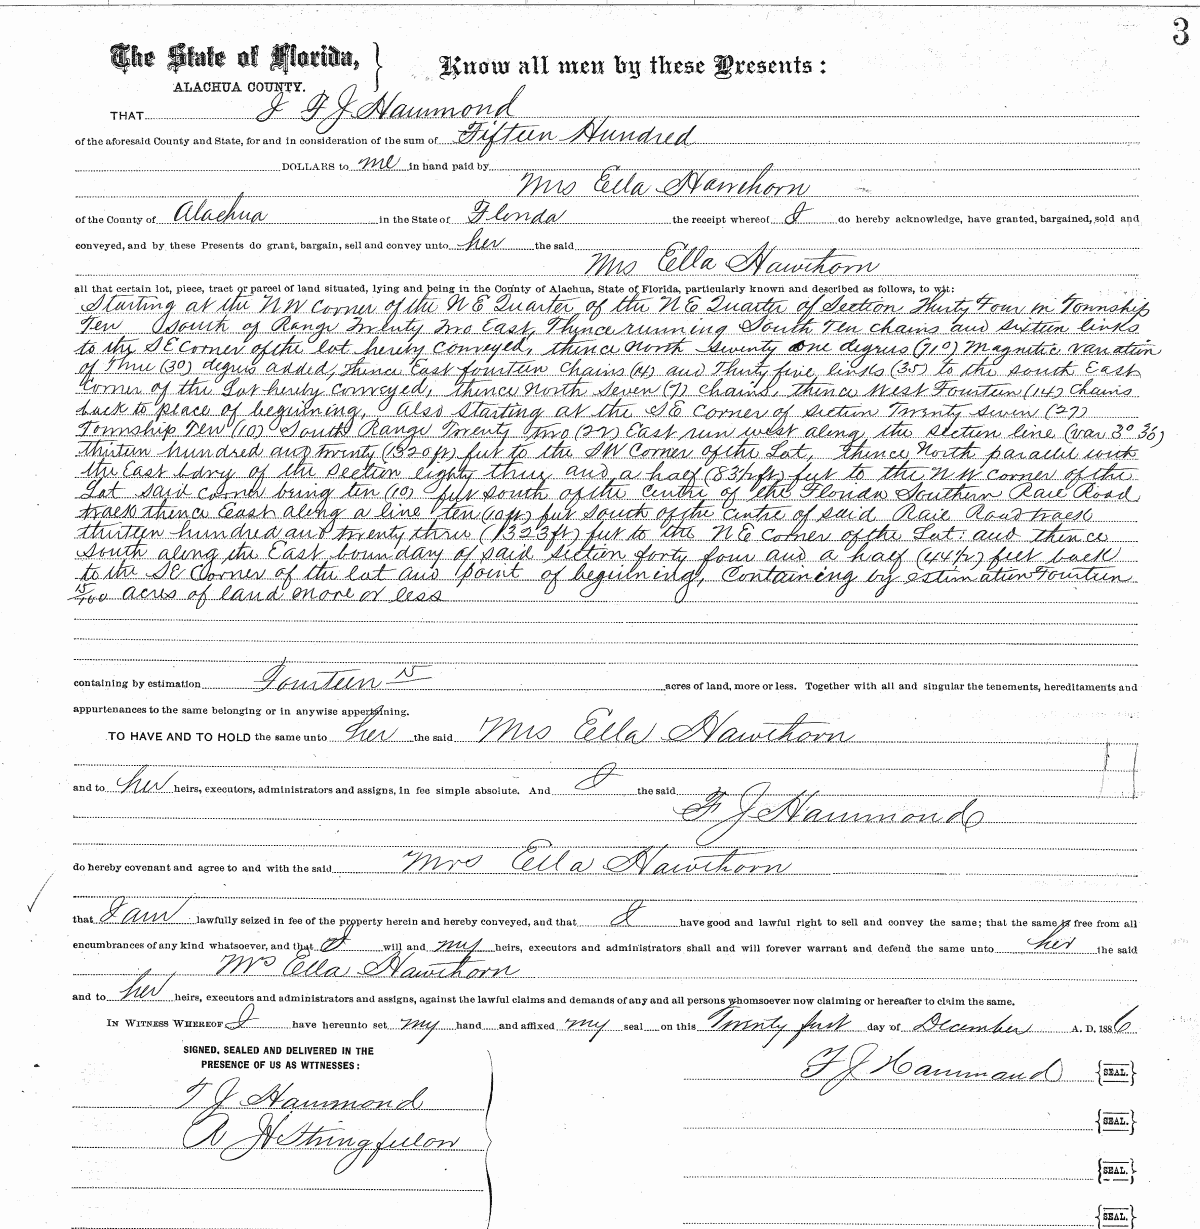 3
The State of Florida, } Know all men by these Presents:
ALACHUA COUNTY.
THAT I F J Hammond
of the aforesaid County and State, for and in consideration of the sum of Fifteen Hundred
DOLLARS to me in hand paid by
Mrs Ella Hawthorn
of the County of Alachua in the State of Florida the receipt whereof I do hereby acknowledge, have granted, bargained, sold and
conveyed, and by these Presents do grant, bargain, sell and convey unto her the said
Mrs Ella Hawthorn
all that certain lot, piece, tract or parcel of land situated, lying and being in the County of Alachua, State of Florida, particularly known and described as follows, to wit:
Starting at the NW Corner of the NE Quarter of the NE Quarter of Section Thirty Four in Township
Ten South of Range Twenty Two East, Thence running South Ten chains and sixteen links
to the SE Corner of the lot hereby conveyed, thence North seventy one degrees (71°) Magnetic variation
of Three (3°) degrees added, thence East fourteen chains (14) and Thirty five links (35) to the south East
Corner of the Lot hereby conveyed, thence North Seven (7) chains, thence West Fourteen (14) chains
back to place of beginning, Also Starting at the SE Corner of section Twenty seven (27)
Township Ten (10) South Range Twenty two (22) East run west along the section line (var 3° 30')
thirteen hundred and twenty (1320 ft) feet to the SW Corner of the Lot, thence North parallel with
the East bdry of the section eighty three and a half (83½ ft) feet to the NW corner of the
Lot said corner being ten (10) feet south of the centre of the Florida Southern Rail Road
track thence East along a line ten (10 ft) feet south of the Centre of said Rail Road track
thirteen hundred and twenty three (1323 ft) feet to the NE Corner of the Lot: and thence
south along the East boundary of said section forty four and a half (44½) feet back
to the SE Corner of the lot and point of beginning, Containing by estimation Fourteen
acres of land more or less
containing by estimation Fourteen acres of land, more or less. Together with all and singular the tenements, hereditaments and
appurtenances to the same belonging or in anywise appertaining.
TO HAVE AND TO HOLD the same unto her the said Mrs Ella Hawthorn
and to her heirs, executors, administrators and assigns, in fee simple absolute. And I the said
F J Hammond
do hereby covenant and agree to and with the said Mrs Ella Hawthorn
that I am lawfully seized in fee of the property herein and hereby conveyed, and that I have good and lawful right to sell and convey the same; that the same is free from all
encumbrances of any kind whatsoever, and that I will and my heirs, executors and administrators shall and will forever warrant and defend the same unto her the said
Mrs Ella Hawthorn
and to her heirs, executors and administrators and assigns, against the lawful claims and demands of any and all persons whomsoever now claiming or hereafter to claim the same.
IN WITNESS WHEREOF I have hereunto set my hand and affixed my seal on this Twenty first day of December A. D. 1886
SIGNED, SEALED AND DELIVERED IN THE
PRESENCE OF US AS WITNESSES:
F J Hammond {SEAL.}
T J Hammond
{SEAL.}
R H Stringfellow
{SEAL.}
{SEAL.}